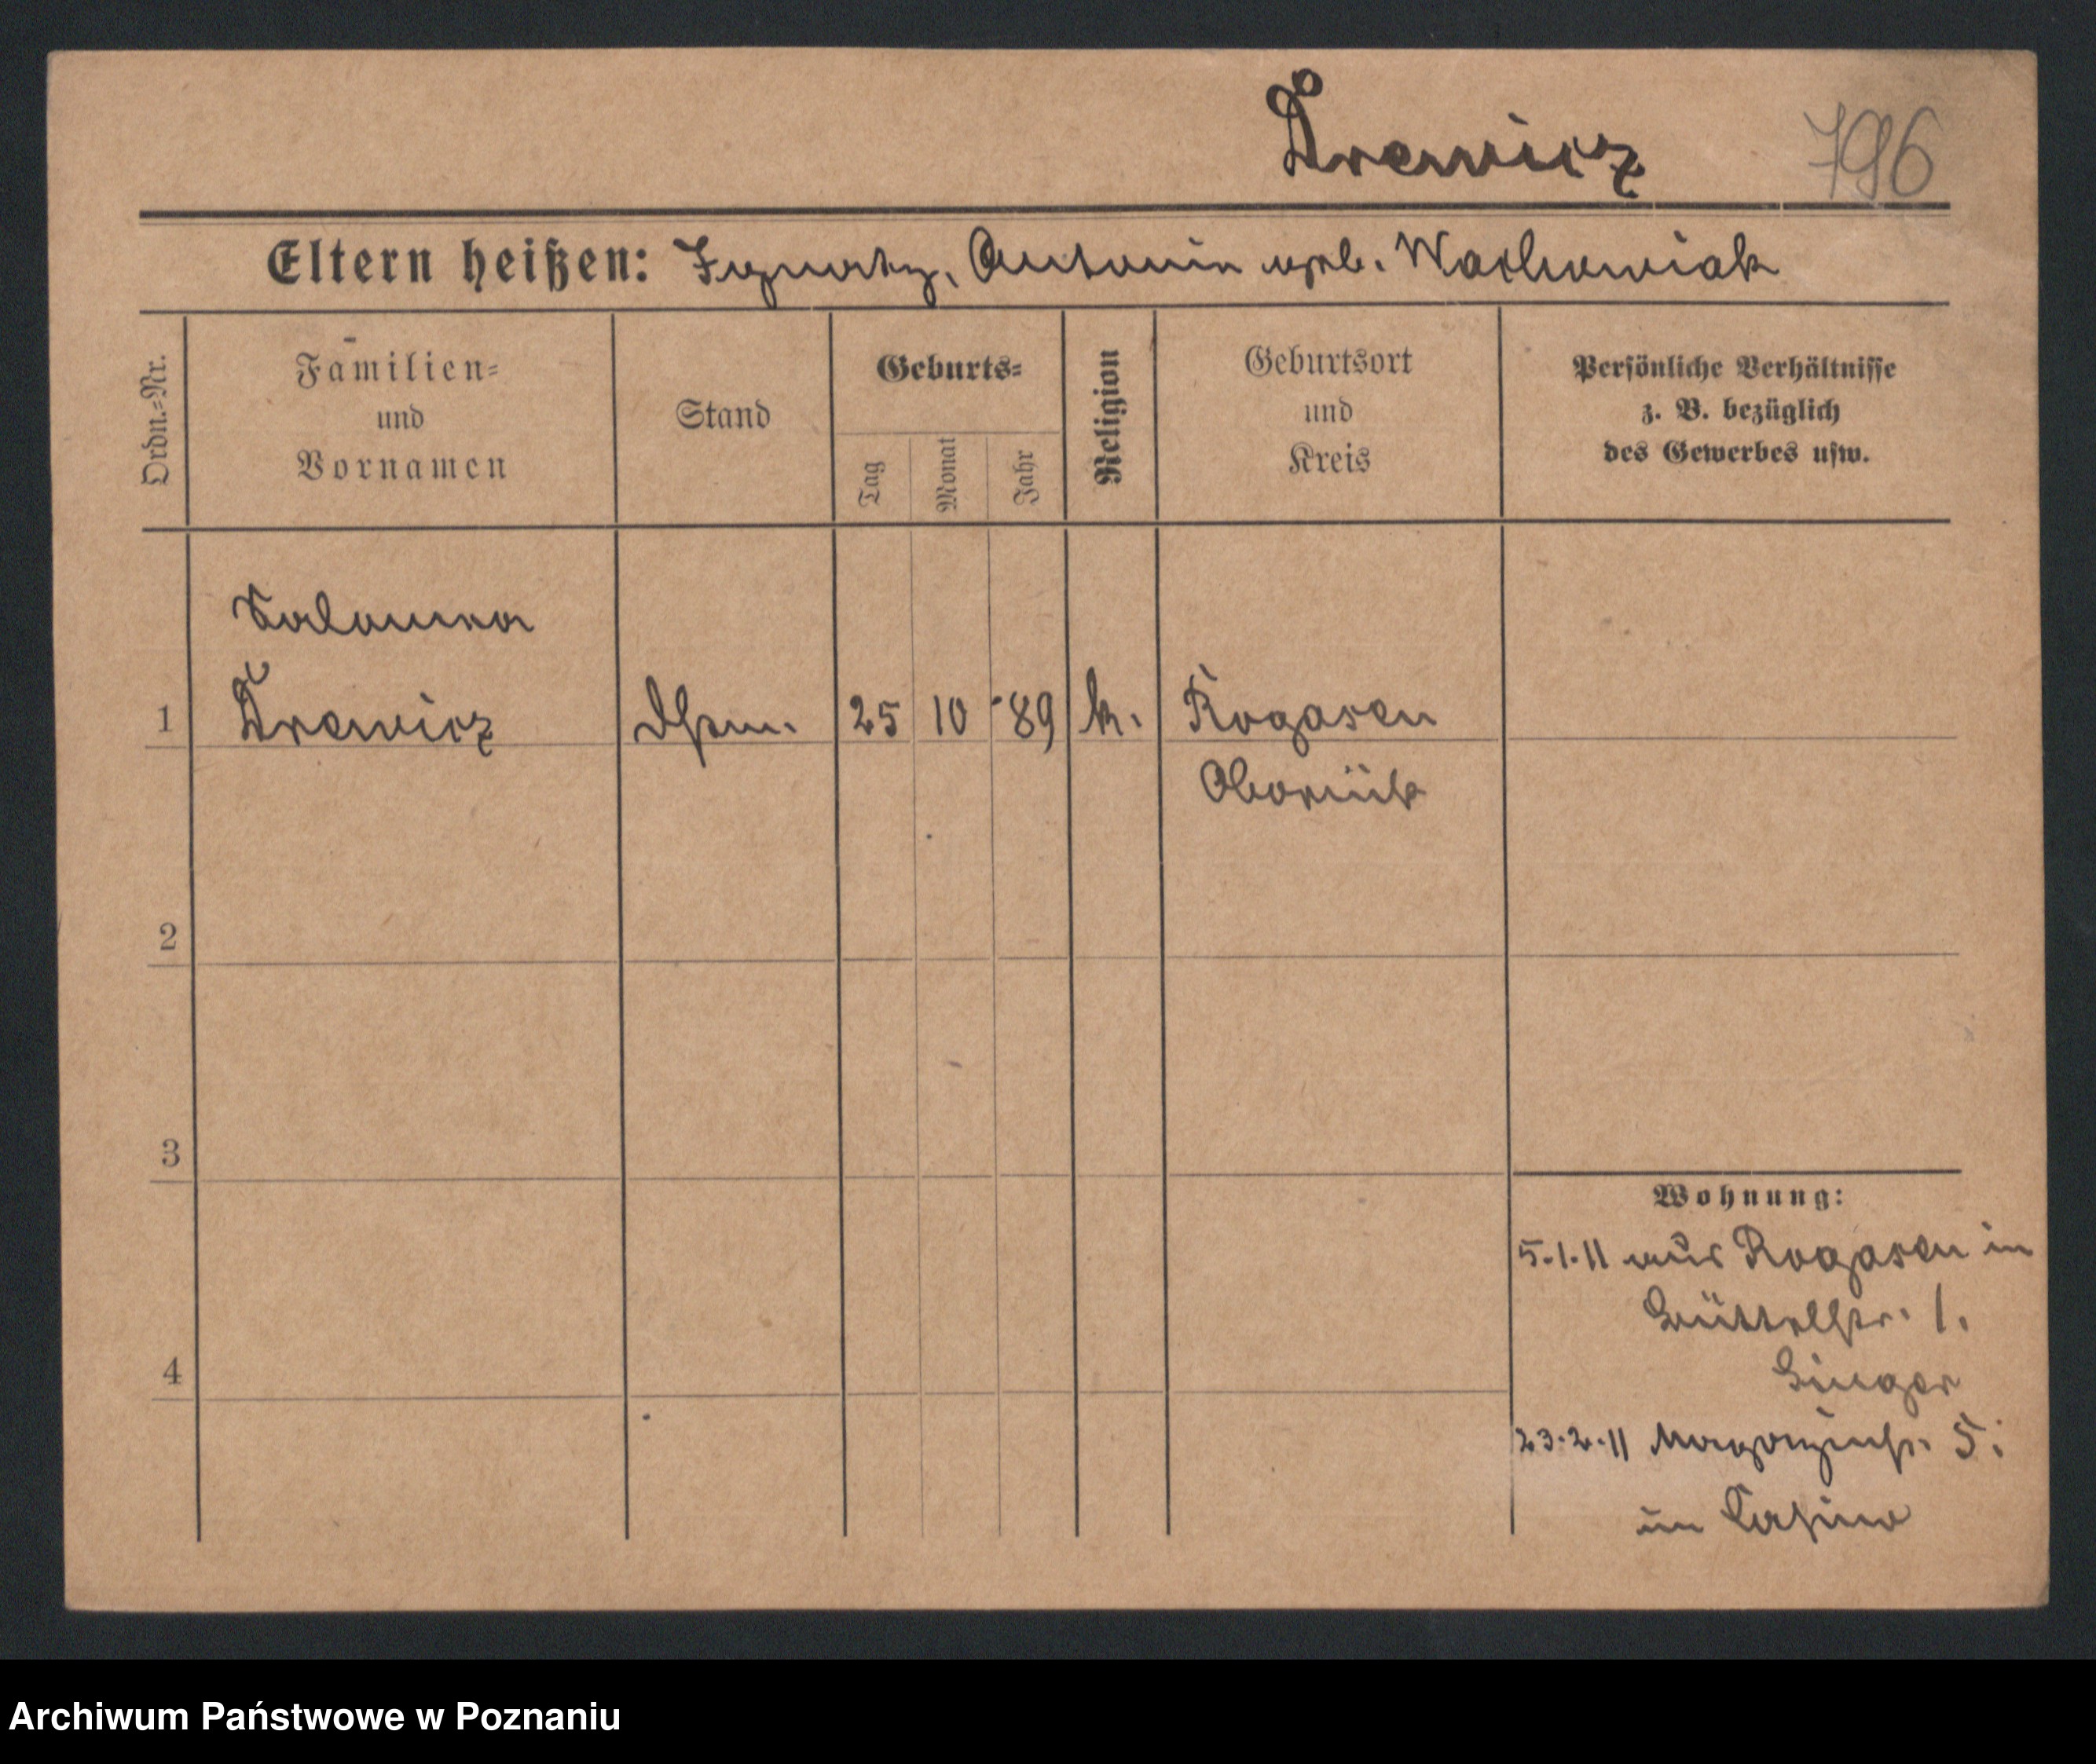 Drewicz 796
Eltern heißen: Ignatz, Antonin geb. Wachowiak
Ordn.=Nr.
Familien=
und
Vornamen
Stand
Geburts=
Tag
Monat
Jahr
Religion
Geburtsort
und
Kreis
Persönliche Verhältnisse
z. B. bezüglich
des Gewerbes usw.
Salomea
1 Drewicz 25 10 89 k. Rogasen
Obornik
2
3
4
Wohnung:
5.1.11 aus Rogasen in
Büttelstr. 1.
23.2.11 Magazinstr. 5.
im Casino
Archiwum Państwowe w Poznaniu